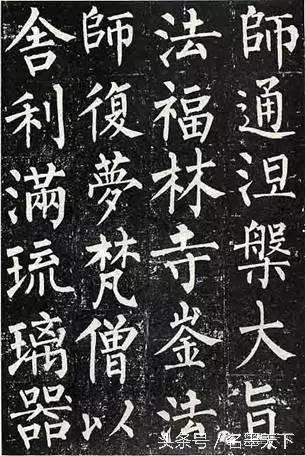 師通涅槃大旨
法福林寺崟法
師復夢梵僧以
舍利滿琉璃器
头条号／名墨天下